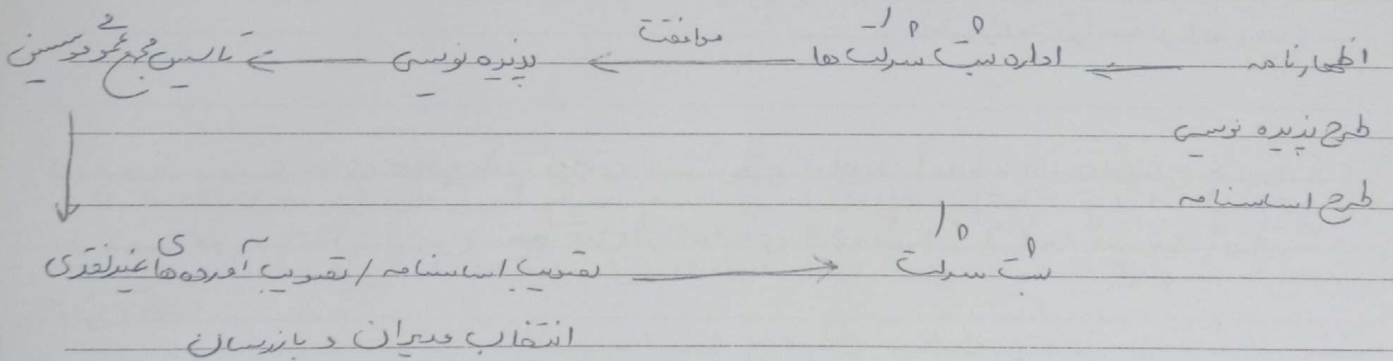 اظهارنامه ← اداره ثبت شرکت ها ← موافقت پذیره نویسی ← تأسیس مجمع عمومی موسسین
طرح پذیره نویسی
طرح اساسنامه
تصویب اساسنامه / تصویب آورده های غیرنقدی → ثبت شرکت
انتخاب مدیران و بازرسان